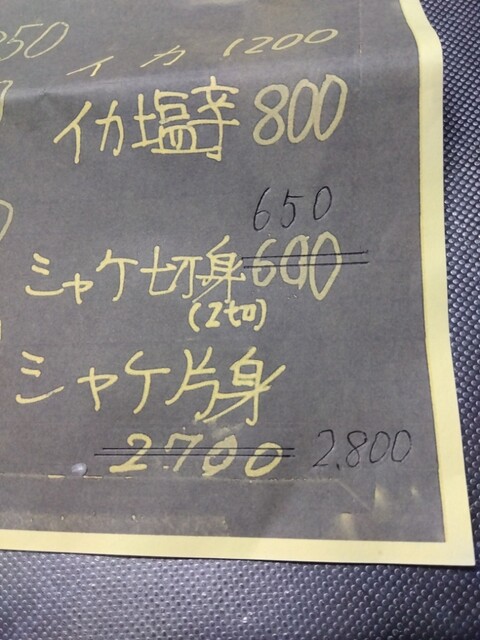 350
イカ 1200
イカ塩辛 800
650
シャケ切身 600
(2切)
シャケ片身
2.700 2.800